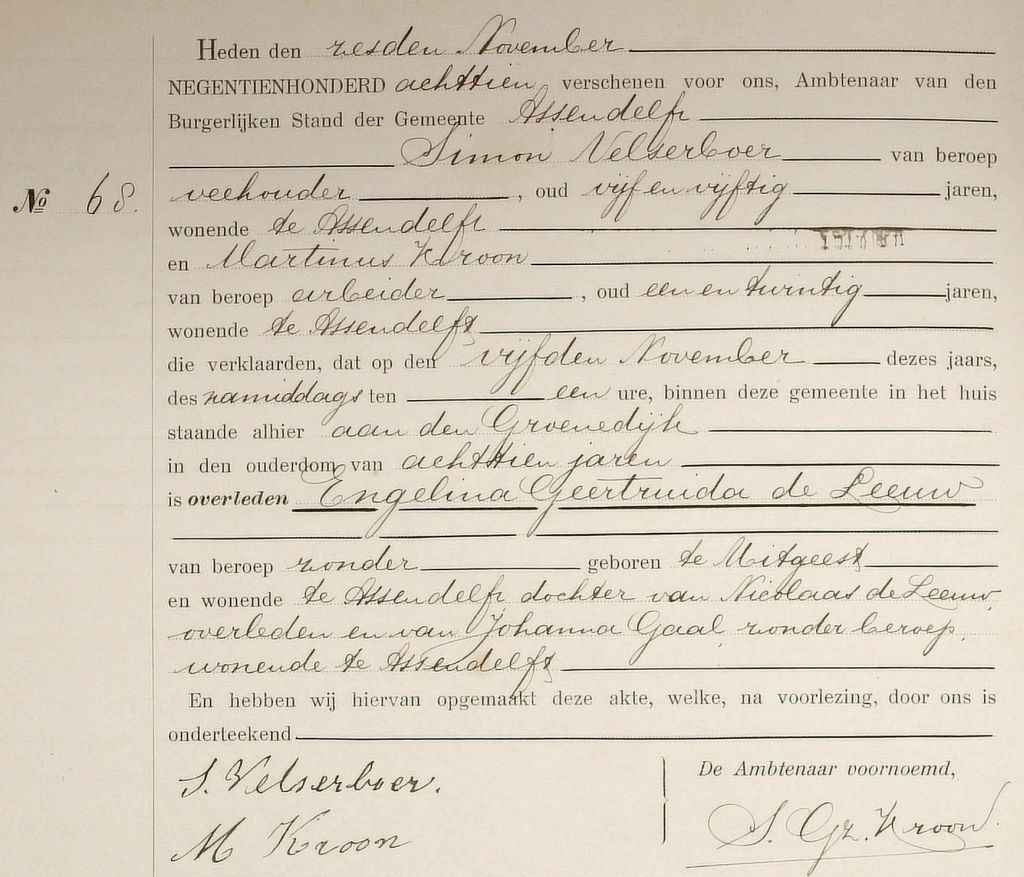 Heden den zesden November
NEGENTIENHONDERD achttien, verschenen voor ons, Ambtenaar van den
Burgerlijken Stand der Gemeente Assendelft
Simon Velserboer van beroep
No 68. veehouder, oud vijf en vijftig jaren,
wonende te Assendelft
en Martinus Kroon
van beroep arbeider, oud een en twintig jaren,
wonende te Assendelft
die verklaarden, dat op den vijfden November dezes jaars,
des namiddags ten een ure, binnen deze gemeente in het huis
staande alhier aan den Groenedijk
in den ouderdom van achttien jaren
is overleden Engelina Geertruida de Leeuw
van beroep zonder geboren te Uitgeest
en wonende te Assendelft, dochter van Nicolaas de Leeuw,
overleden en van Johanna Gaal, zonder beroep,
wonende te Assendelft
En hebben wij hiervan opgemaakt deze akte, welke, na voorlezing, door ons is
onderteekend
S. Velserboer.
De Ambtenaar voornoemd,
M Kroon
S. Gz. Kroon.